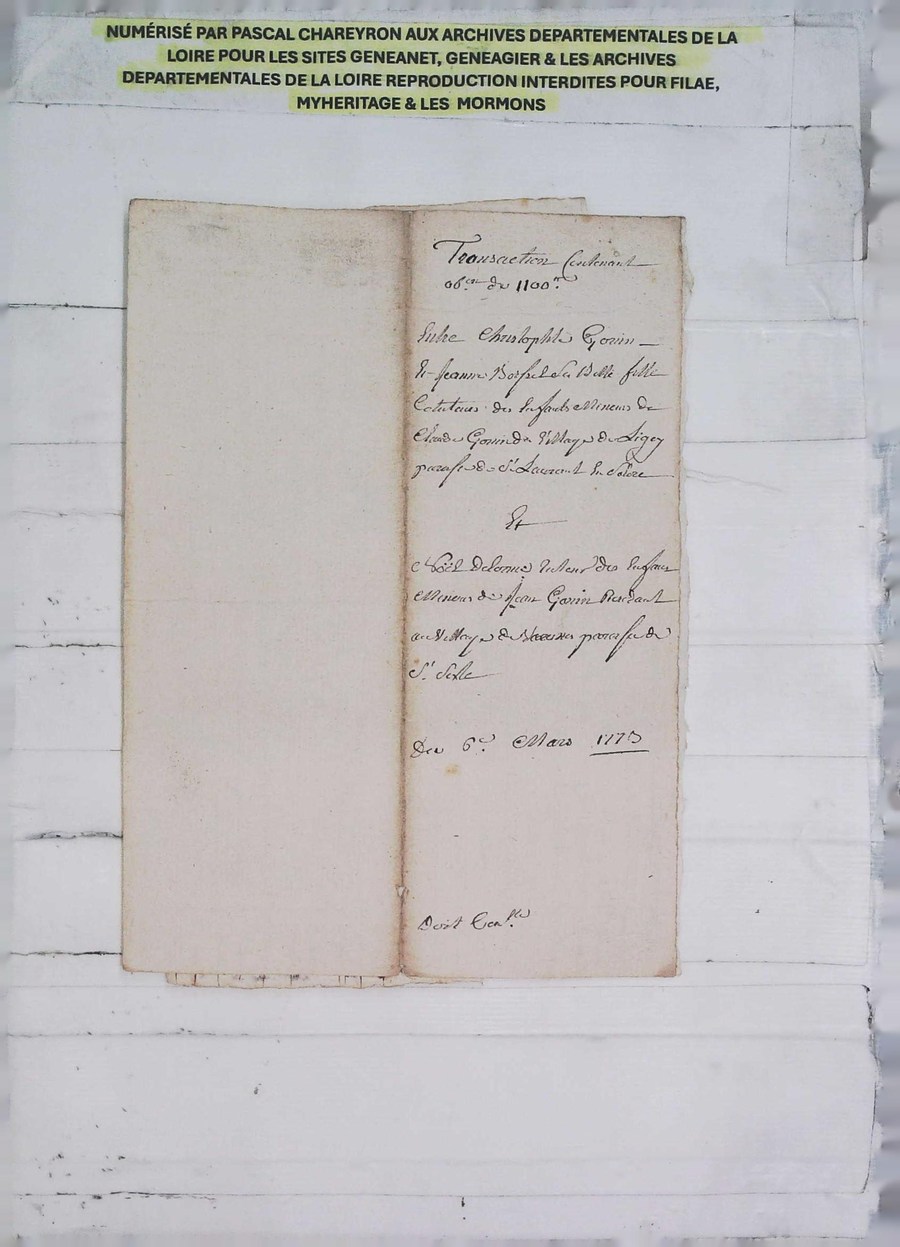 NUMÉRISÉ PAR PASCAL CHAREYRON AUX ARCHIVES DEPARTEMENTALES DE LA
LOIRE POUR LES SITES GENEANET, GENEAGIER & LES ARCHIVES
DEPARTEMENTALES DE LA LOIRE REPRODUCTION INTERDITES POUR FILAE,
MYHERITAGE & LES MORMONS
Transaction Contenant
de 1100
Entre Christophle Gonin
Et Jeanne sa Belle fille
des Enfants Mineurs de
Claude Gonin du Village de Ligey
de St Laurent En
Et
Noël Delorme tuteur des Enfans
Mineurs de Jean Gonin Residant
au Village de de
St Sixte
Du 6e Mars 1773